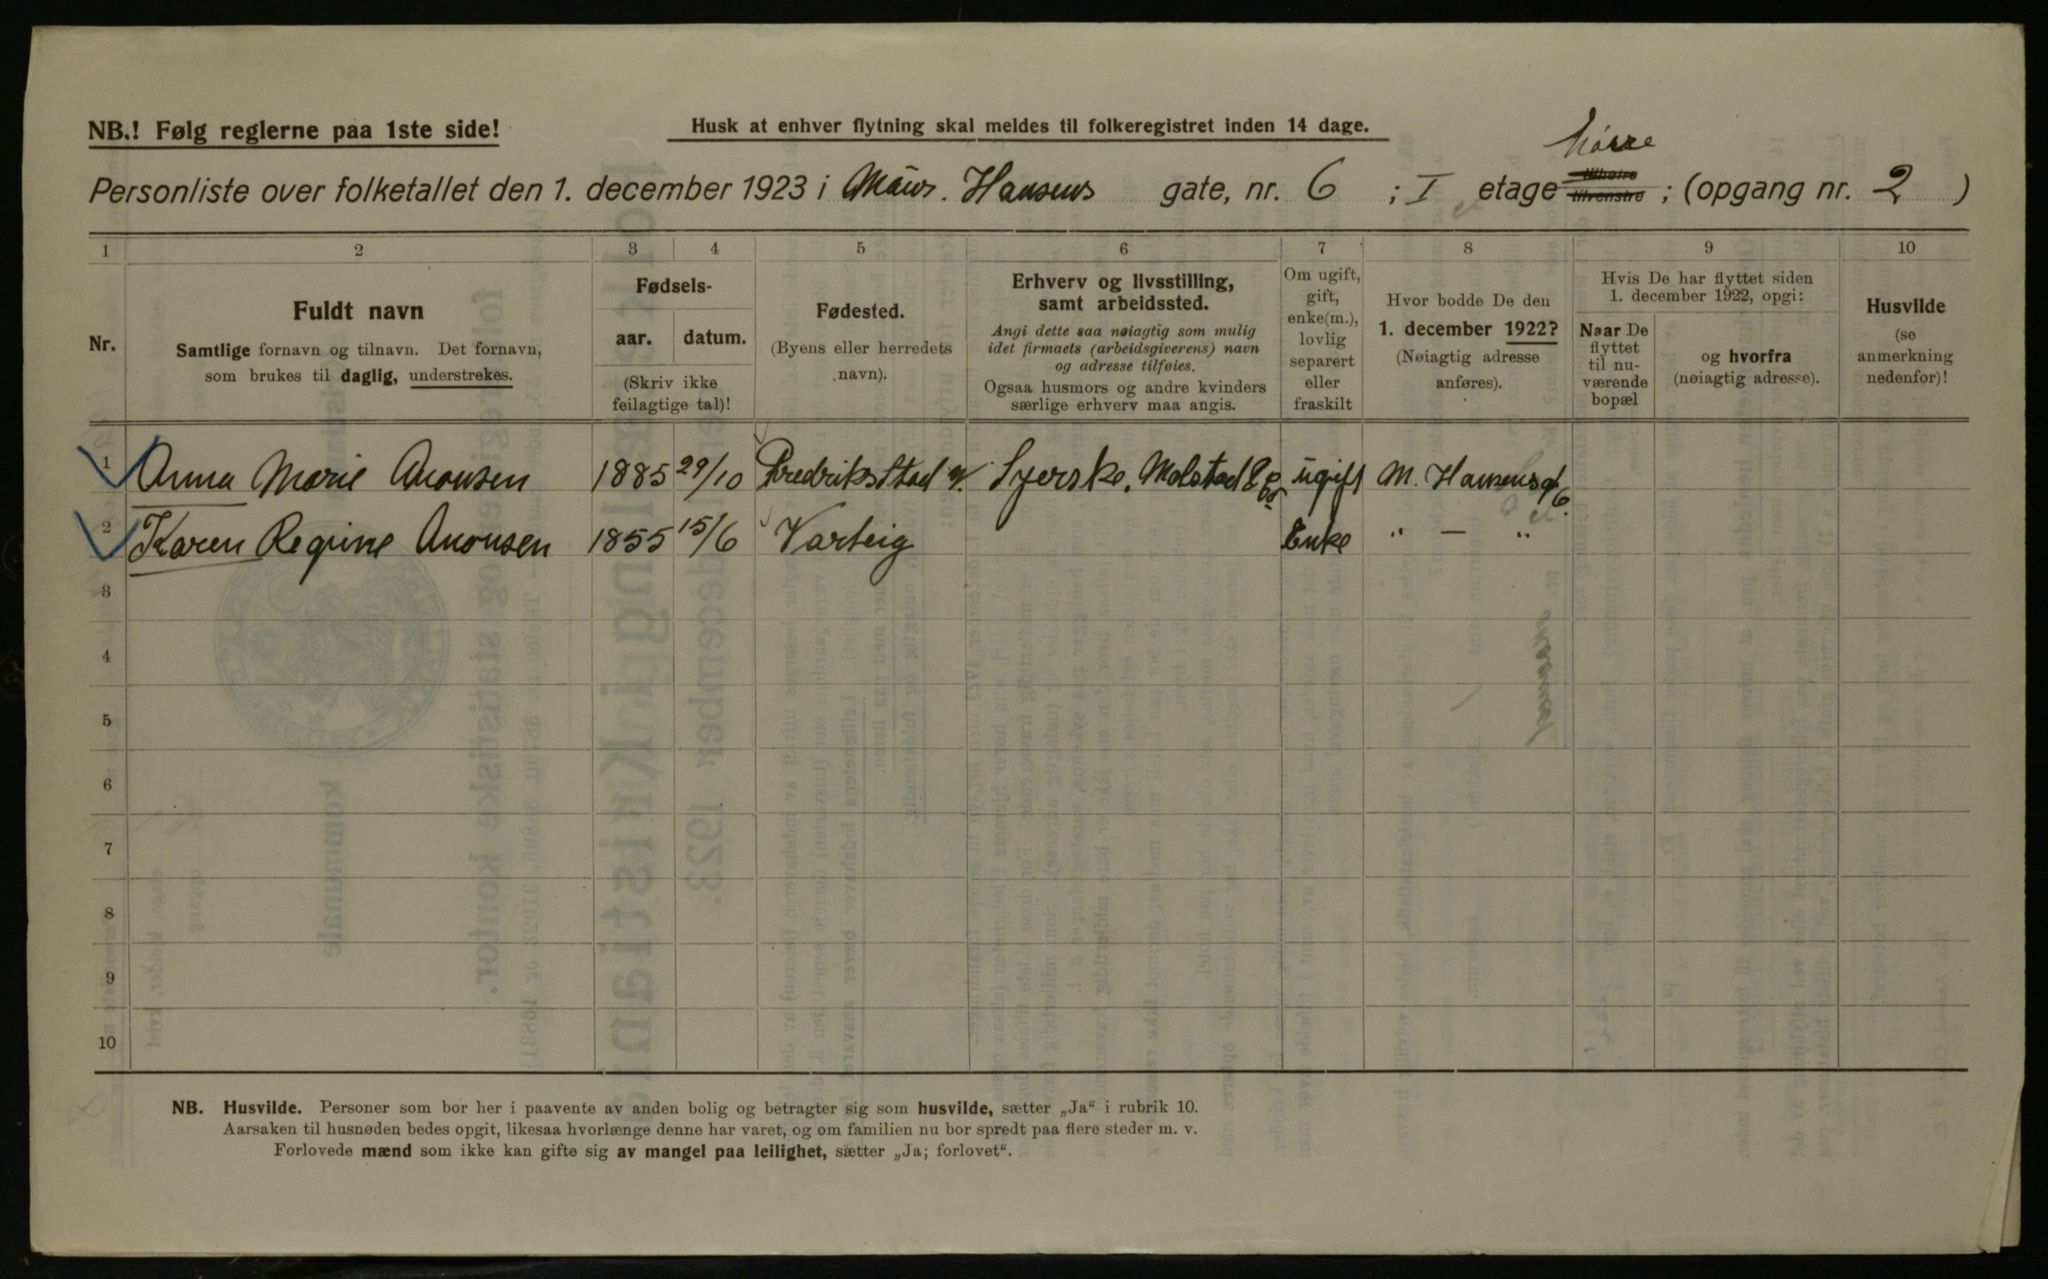 NB.! Følg reglerne paa 1ste side!
Husk at enhver flytning skal meldes til folkeregistret inden 14 dage.
Personliste over folketallet den 1. december 1923 i Maur. Hansens gate, nr. 6 ; I etage tilhøire tilvenstre ; (opgang nr. 2 )
1 2 3 4 5 6 7 8 9 10
Nr.
Fuldt navn
Samtlige fornavn og tilnavn. Det fornavn,
som brukes til daglig, understrekes.
Fødsels-
aar. datum.
(Skriv ikke
feilagtige tal)!
Fødested.
(Byens eller herredets
navn).
Erhverv og livsstilling,
samt arbeidssted.
Angi dette saa nøiagtig som mulig
idet firmaets (arbeidsgiverens) navn
og adresse tilføies.
Ogsaa husmors og andre kvinders
særlige erhverv maa angis.
Om ugift,
gift,
enke(m.),
lovlig
separert
eller
fraskilt
Hvor bodde De den
1. december 1922?
(Nøiagtig adresse
anføres).
Hvis De har flyttet siden
1. december 1922, opgi:
Naar De
flyttet
til nu-
værende
bopæl
og hvorfra
(nøiagtig adresse).
Husvilde
(se
anmerkning
nedenfor)!
1 Anna Marie Anonsen 1885 29/10 Fredriksstad Syerske, Molstad ugift M. Hansens g 6.
2 Karen Regine Anonsen 1855 15/6 Varteig Enke " — "
3
4
5
6
7
8
9
10
NB. Husvilde. Personer som bor her i paavente av anden bolig og betragter sig som husvilde, sætter „Ja“ i rubrik 10.
Aarsaken til husnøden bedes opgit, likesaa hvorlænge denne har varet, og om familien nu bor spredt paa flere steder m. v.
Forlovede mænd som ikke kan gifte sig av mangel paa leilighet, sætter „Ja; forlovet“.